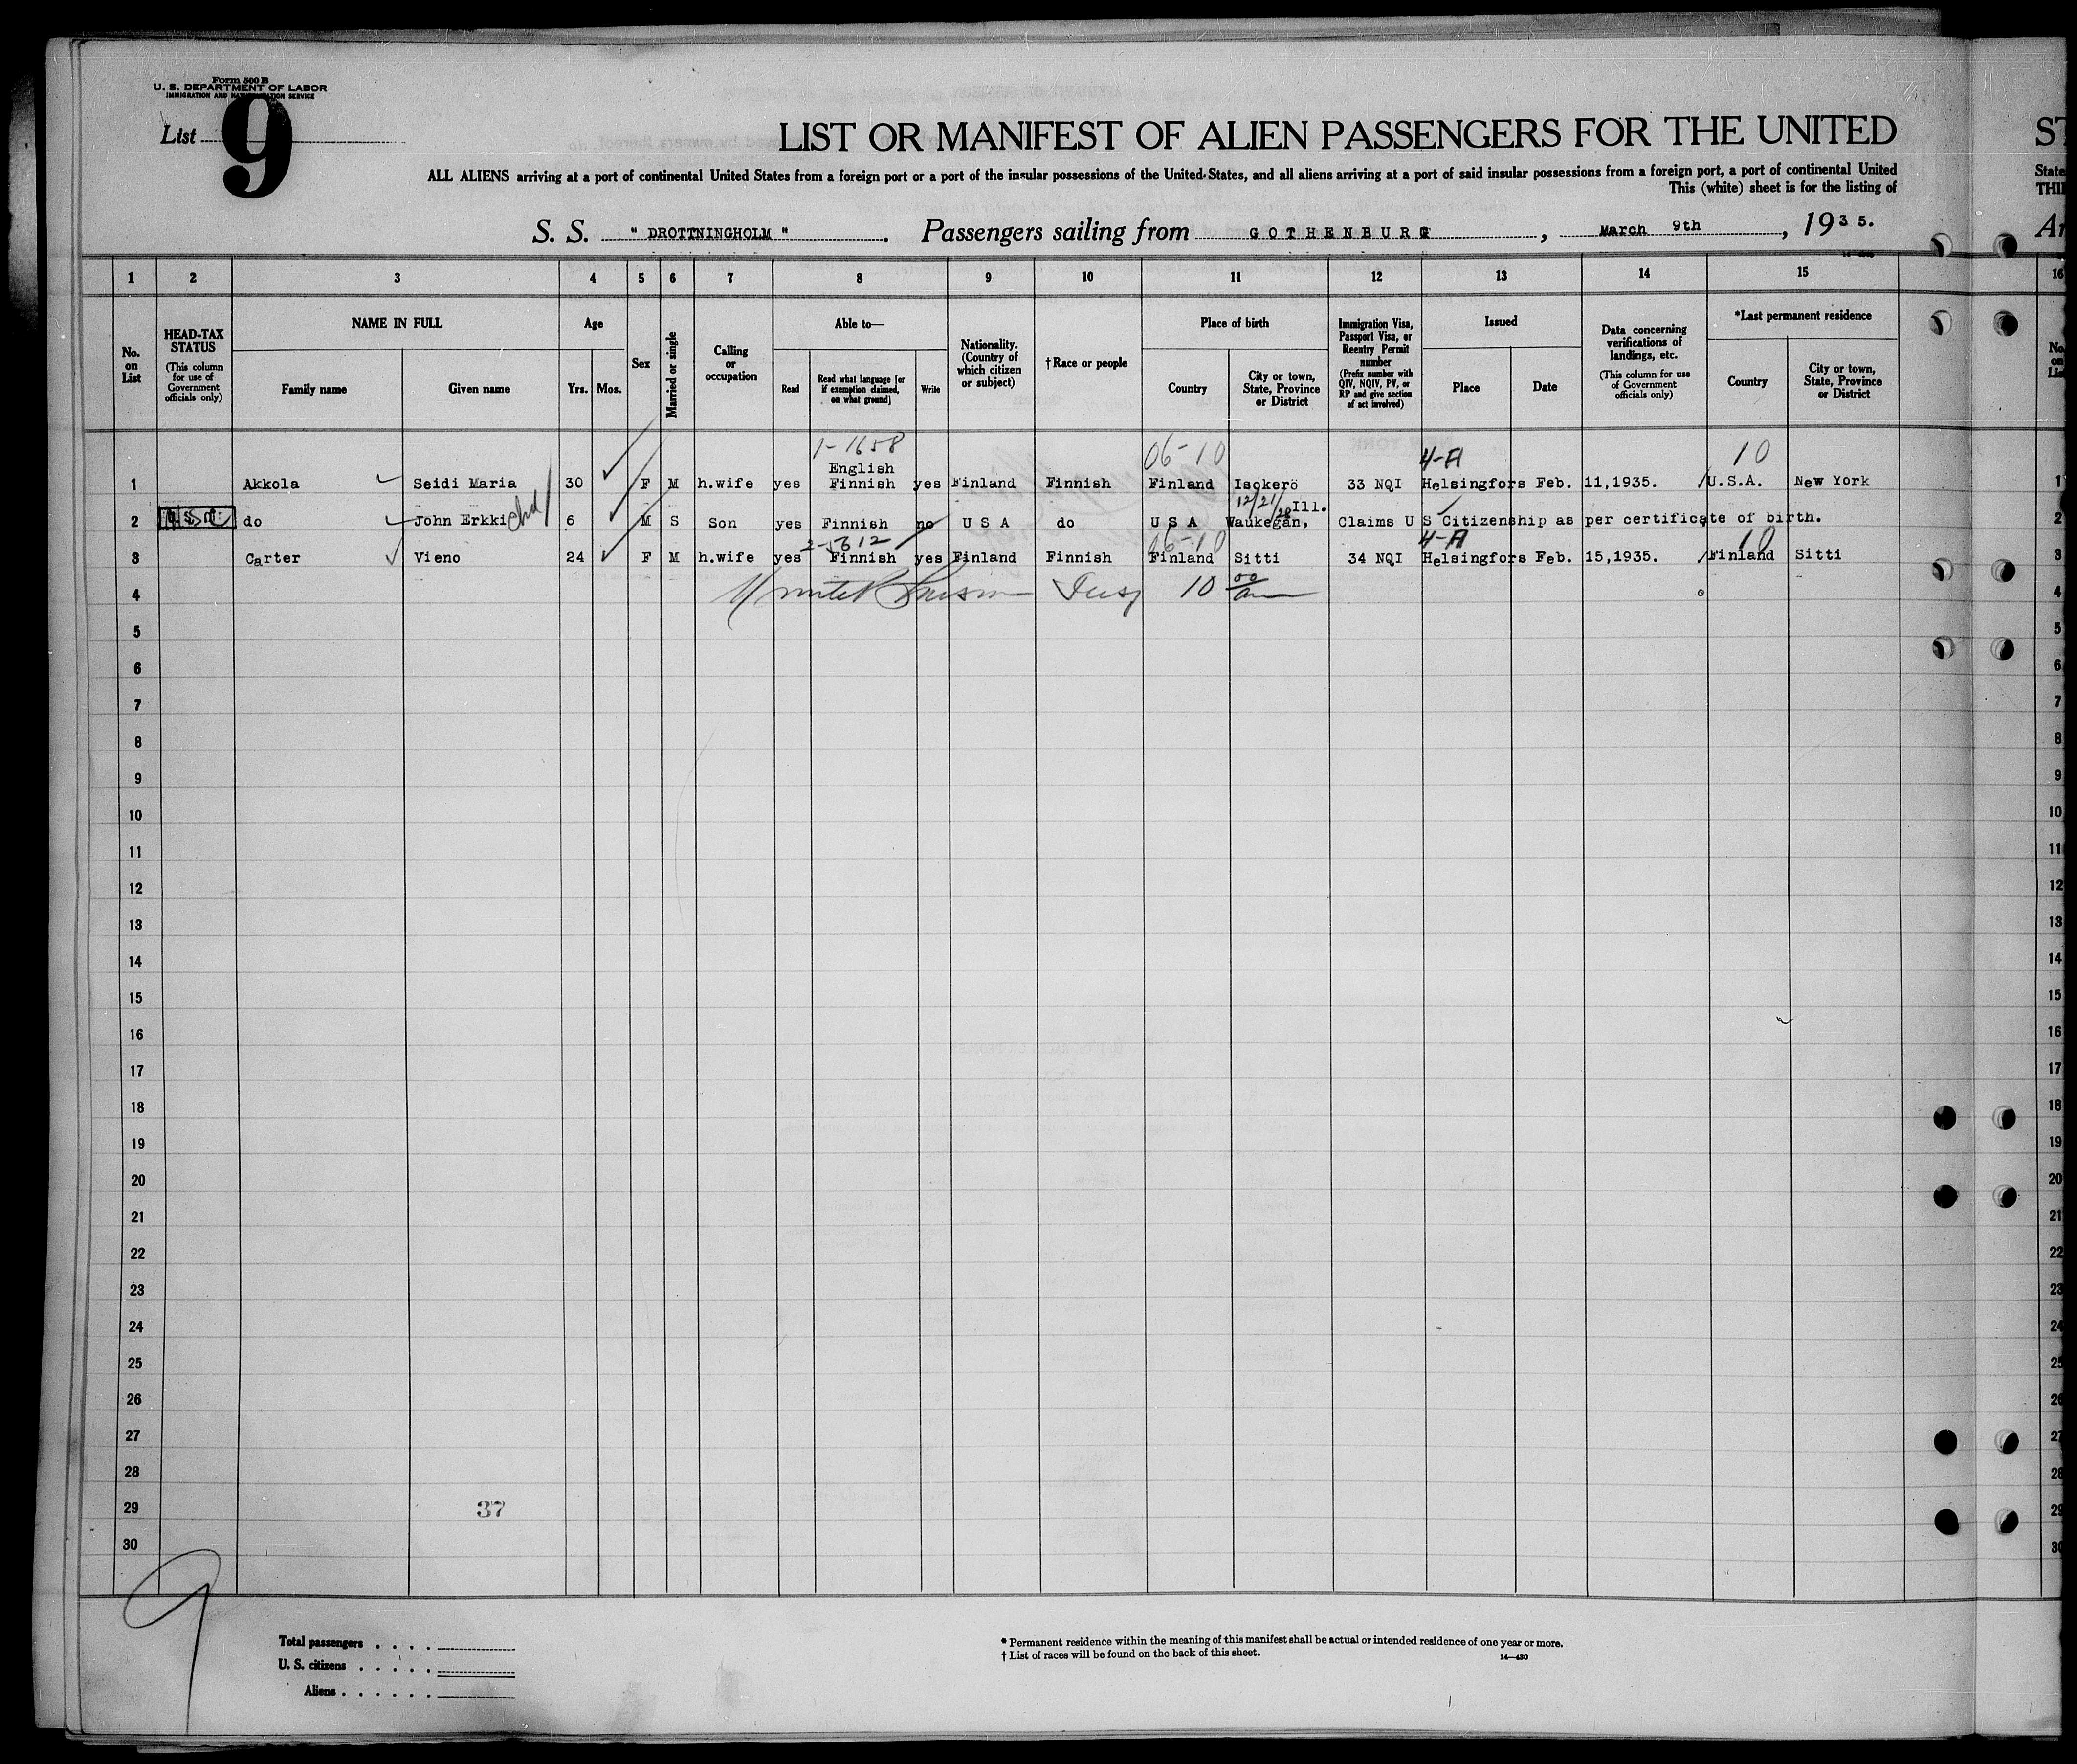 Form 500 B
U. S. DEPARTMENT OF LABOR
IMMIGRATION AND NATURALIZATION SERVICE
List 9
LIST OR MANIFEST OF ALIEN PASSENGERS FOR THE UNITED ST
ALL ALIENS arriving at a port of continental United States from a foreign port or a port of the insular possessions of the United States, and all aliens arriving at a port of said insular possessions from a foreign port, a port of continental United State
This (white) sheet is for the listing of THI
S. S. " DROTTNINGHOLM " . Passengers sailing from GOTHENBURG , March 9th , 1935. Ar
1 2 3 4 5 6 7 8 9 10 11 12 13 14 15 16
No. on List
HEAD-TAX STATUS (This column for use of Government officials only)
NAME IN FULL
Family name
Given name
Age
Yrs. Mos.
Sex
Married or single
Calling or occupation
Able to—
Read
Read what language [or if exemption claimed, on what ground]
Write
Nationality. (Country of which citizen or subject)
† Race or people
Place of birth
Country
City or town, State, Province or District
Immigration Visa, Passport Visa, or Reentry Permit number (Prefix number with QIV, NQIV, PV, or RP and give section of act involved)
Issued
Place
Date
Data concerning verifications of landings, etc. (This column for use of Government officials only)
*Last permanent residence
Country
City or town, State, Province or District
No. on List
1-1658 06-10 4-A 10
1 Akkola Seidi Maria 30 F M h.wife yes English Finnish yes Finland Finnish Finland Isokerö 33 NQI Helsingfors Feb. 11,1935. U.S.A. New York 1
12/21/28
2 do John Erkki chd 6 M S Son yes Finnish no U S A do U S A Waukegan, Ill. Claims U S Citizenship as per certificate of birth. 2
2-5612 06-10 4-A 10
3 Carter Vieno 24 F M h.wife yes Finnish yes Finland Finnish Finland Sitti 34 NQI Helsingfors Feb. 15,1935. Finland Sitti 3
4 10 00 4
5 5
6 6
7 7
8 8
9 9
10 10
11 11
12 12
13 13
14 14
15 15
16 16
17 17
18 18
19 19
20 20
21 21
22 22
23 23
24 24
25 25
26 26
27 27
28 28
29 37 29
30 30
9
Total passengers . . . .
U. S. citizens . . . . .
Aliens . . . . . .
* Permanent residence within the meaning of this manifest shall be actual or intended residence of one year or more.
† List of races will be found on the back of this sheet.
14—430